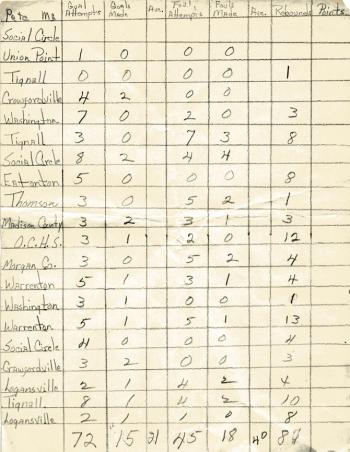 Pete Mc Goal Attempts Goals Made Ave. Foul Attempts Fouls Made Ave. Rebounds Points
Social Circle
Union Point 1 0 0 0
Tignall 0 0 0 0 1
Crawfordville 4 2 0 0
Washington 7 0 2 0 3
Tignall 3 0 7 3 8
Social Circle 8 2 4 4
Eatonton 5 0 0 0 8
Thomson 3 0 5 2 1
Madison County 3 2 3 1 3
O.C.H.S. 3 1 2 0 12
Morgan Co. 3 0 5 2 4
Warrenton 5 1 3 1 4
Washington 3 1 0 0 1
Warrenton 5 1 5 1 13
Social Circle 4 0 0 0 4
Crawfordville 3 2 0 0 3
Logansville 2 1 4 2 4
Tignall 8 1 4 2 10
Logansville 2 1 1 0 8
72 15 21 45 18 40